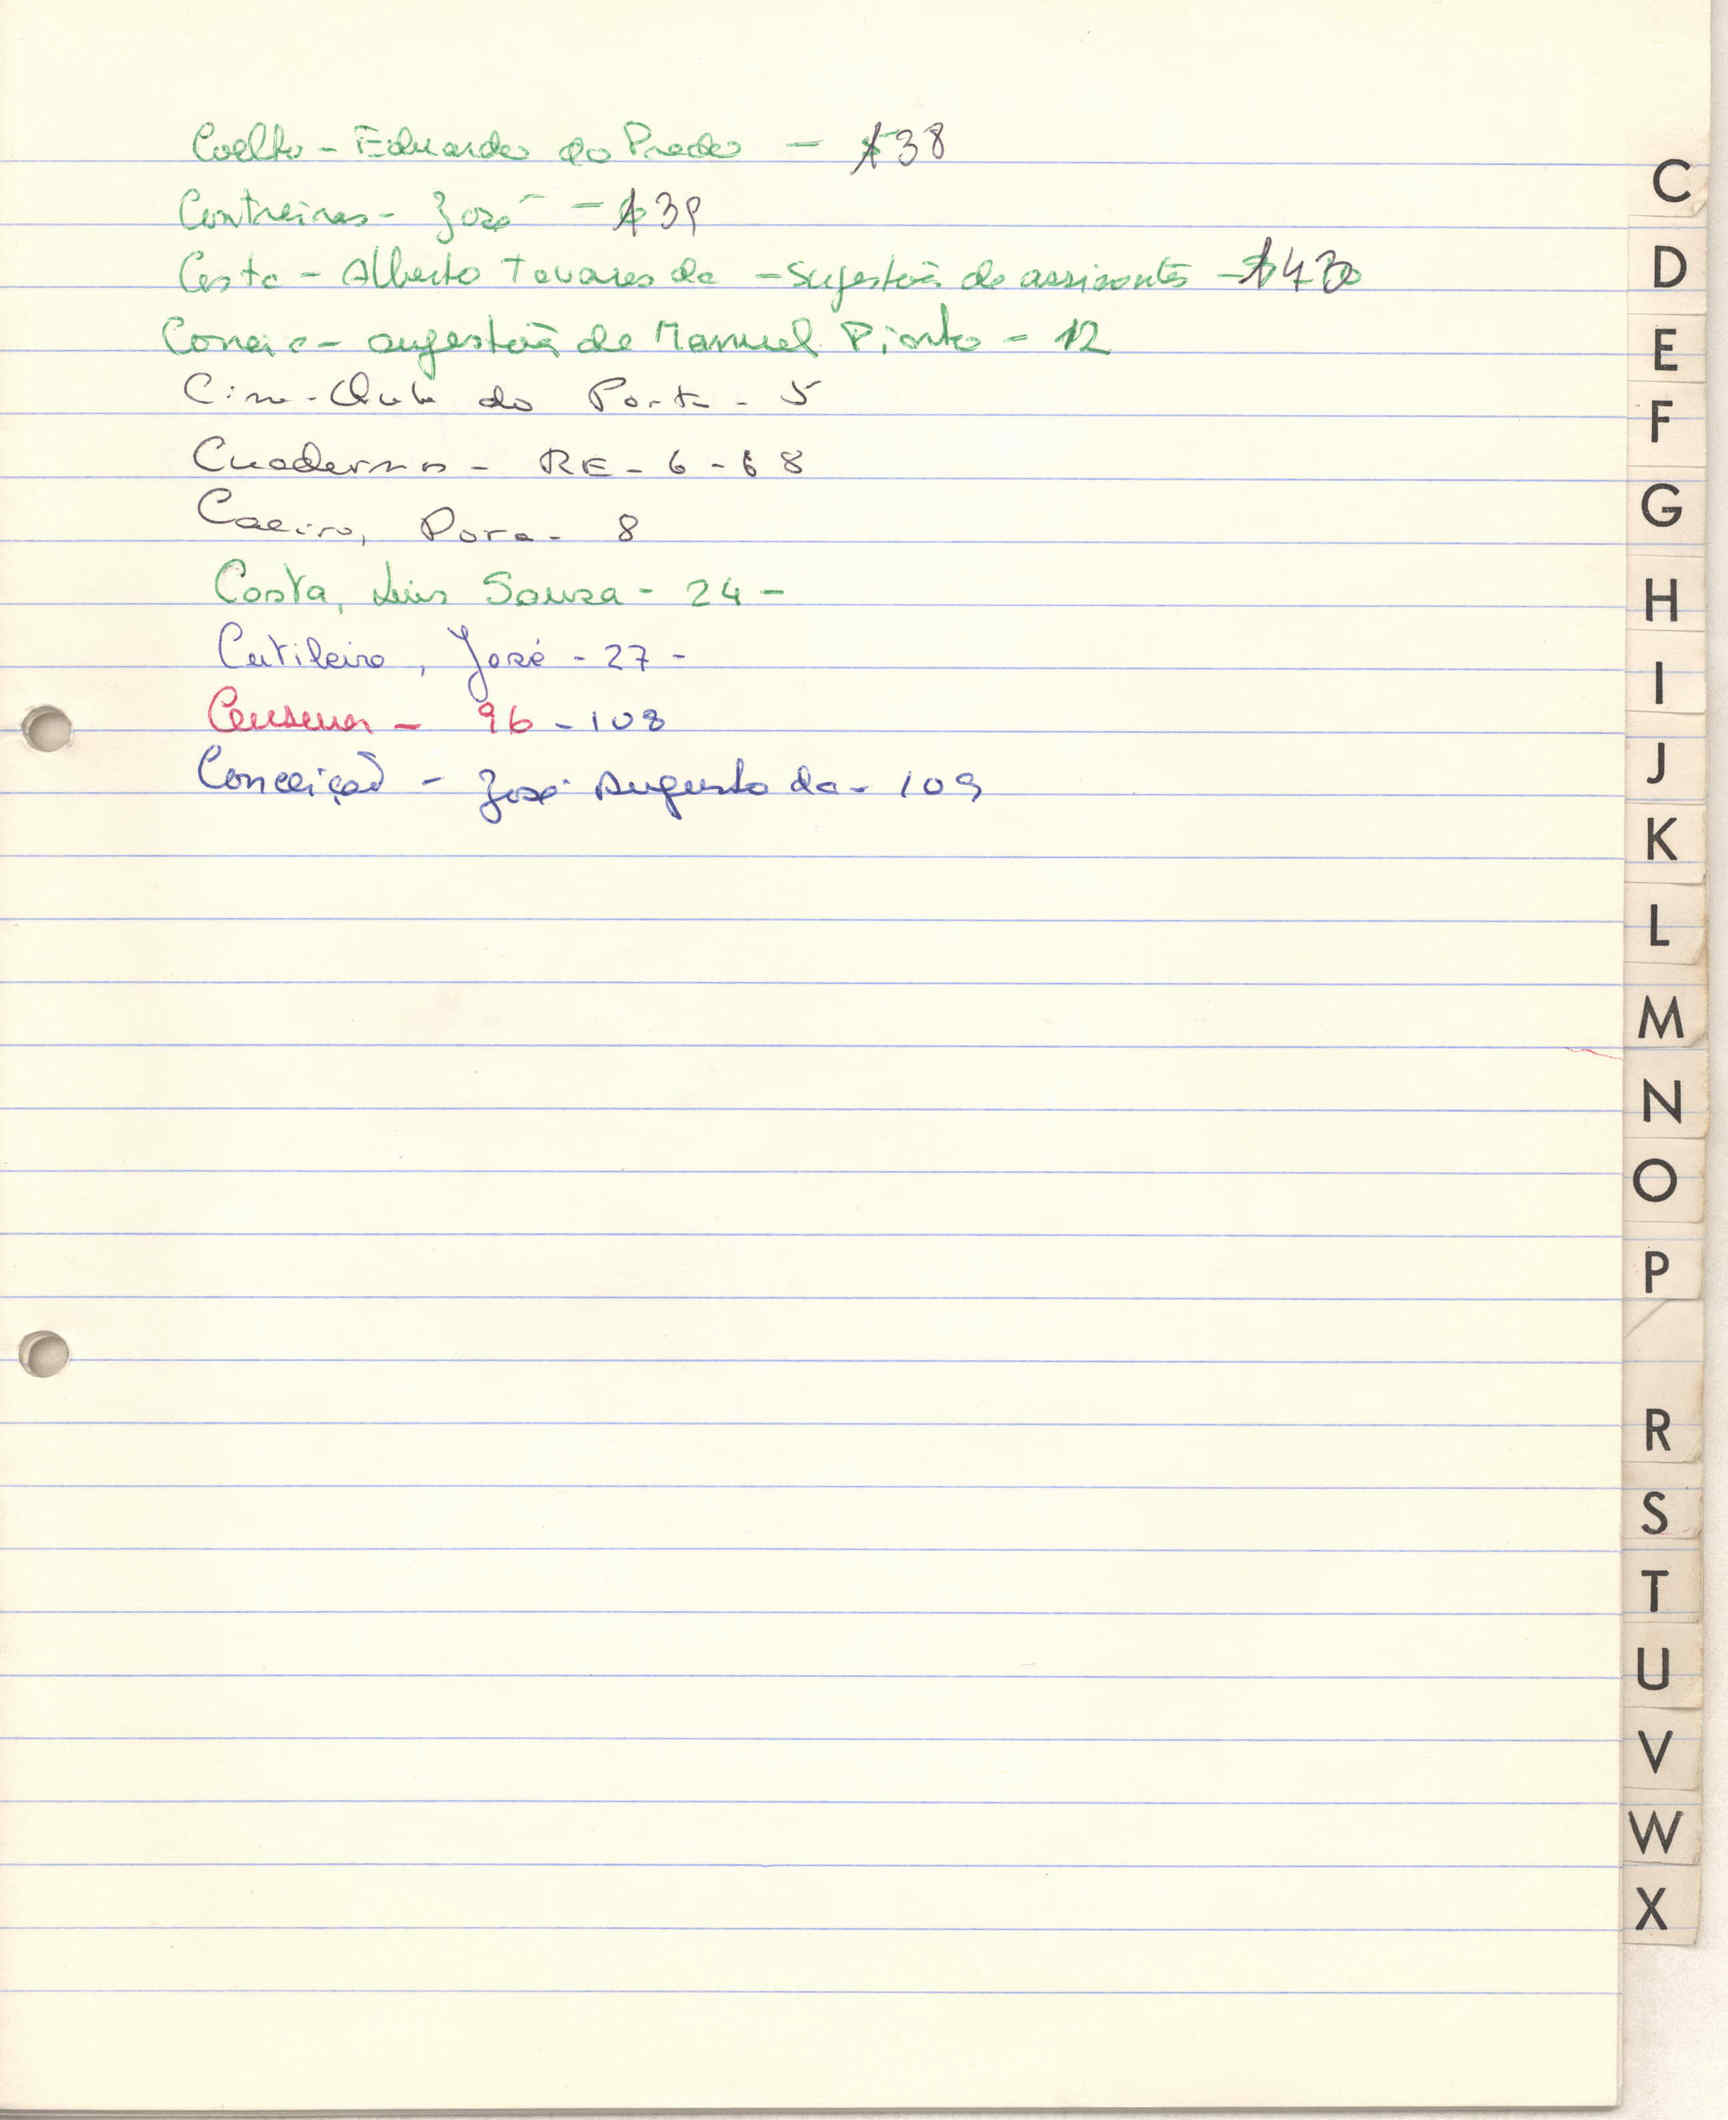 Coelho - Eduardo do Prado - 38
Contreiras - José - 39
Costa - Alberto Tavares da - sugestão de assinantes -
sugestão de Manuel Pionto - 12
Cine-Club do Porto - 5
Cuadernos - RE - 6 - 68
Caeiro, Pora - 8
Costa, Luis Sousa - 24 -
Cutileiro, José - 27 -
Censura - 96 - 108
Conceição - José Augusto da - 109
C
D
E
F
G
H
I
J
K
L
M
N
O
P
R
S
T
U
V
W
X